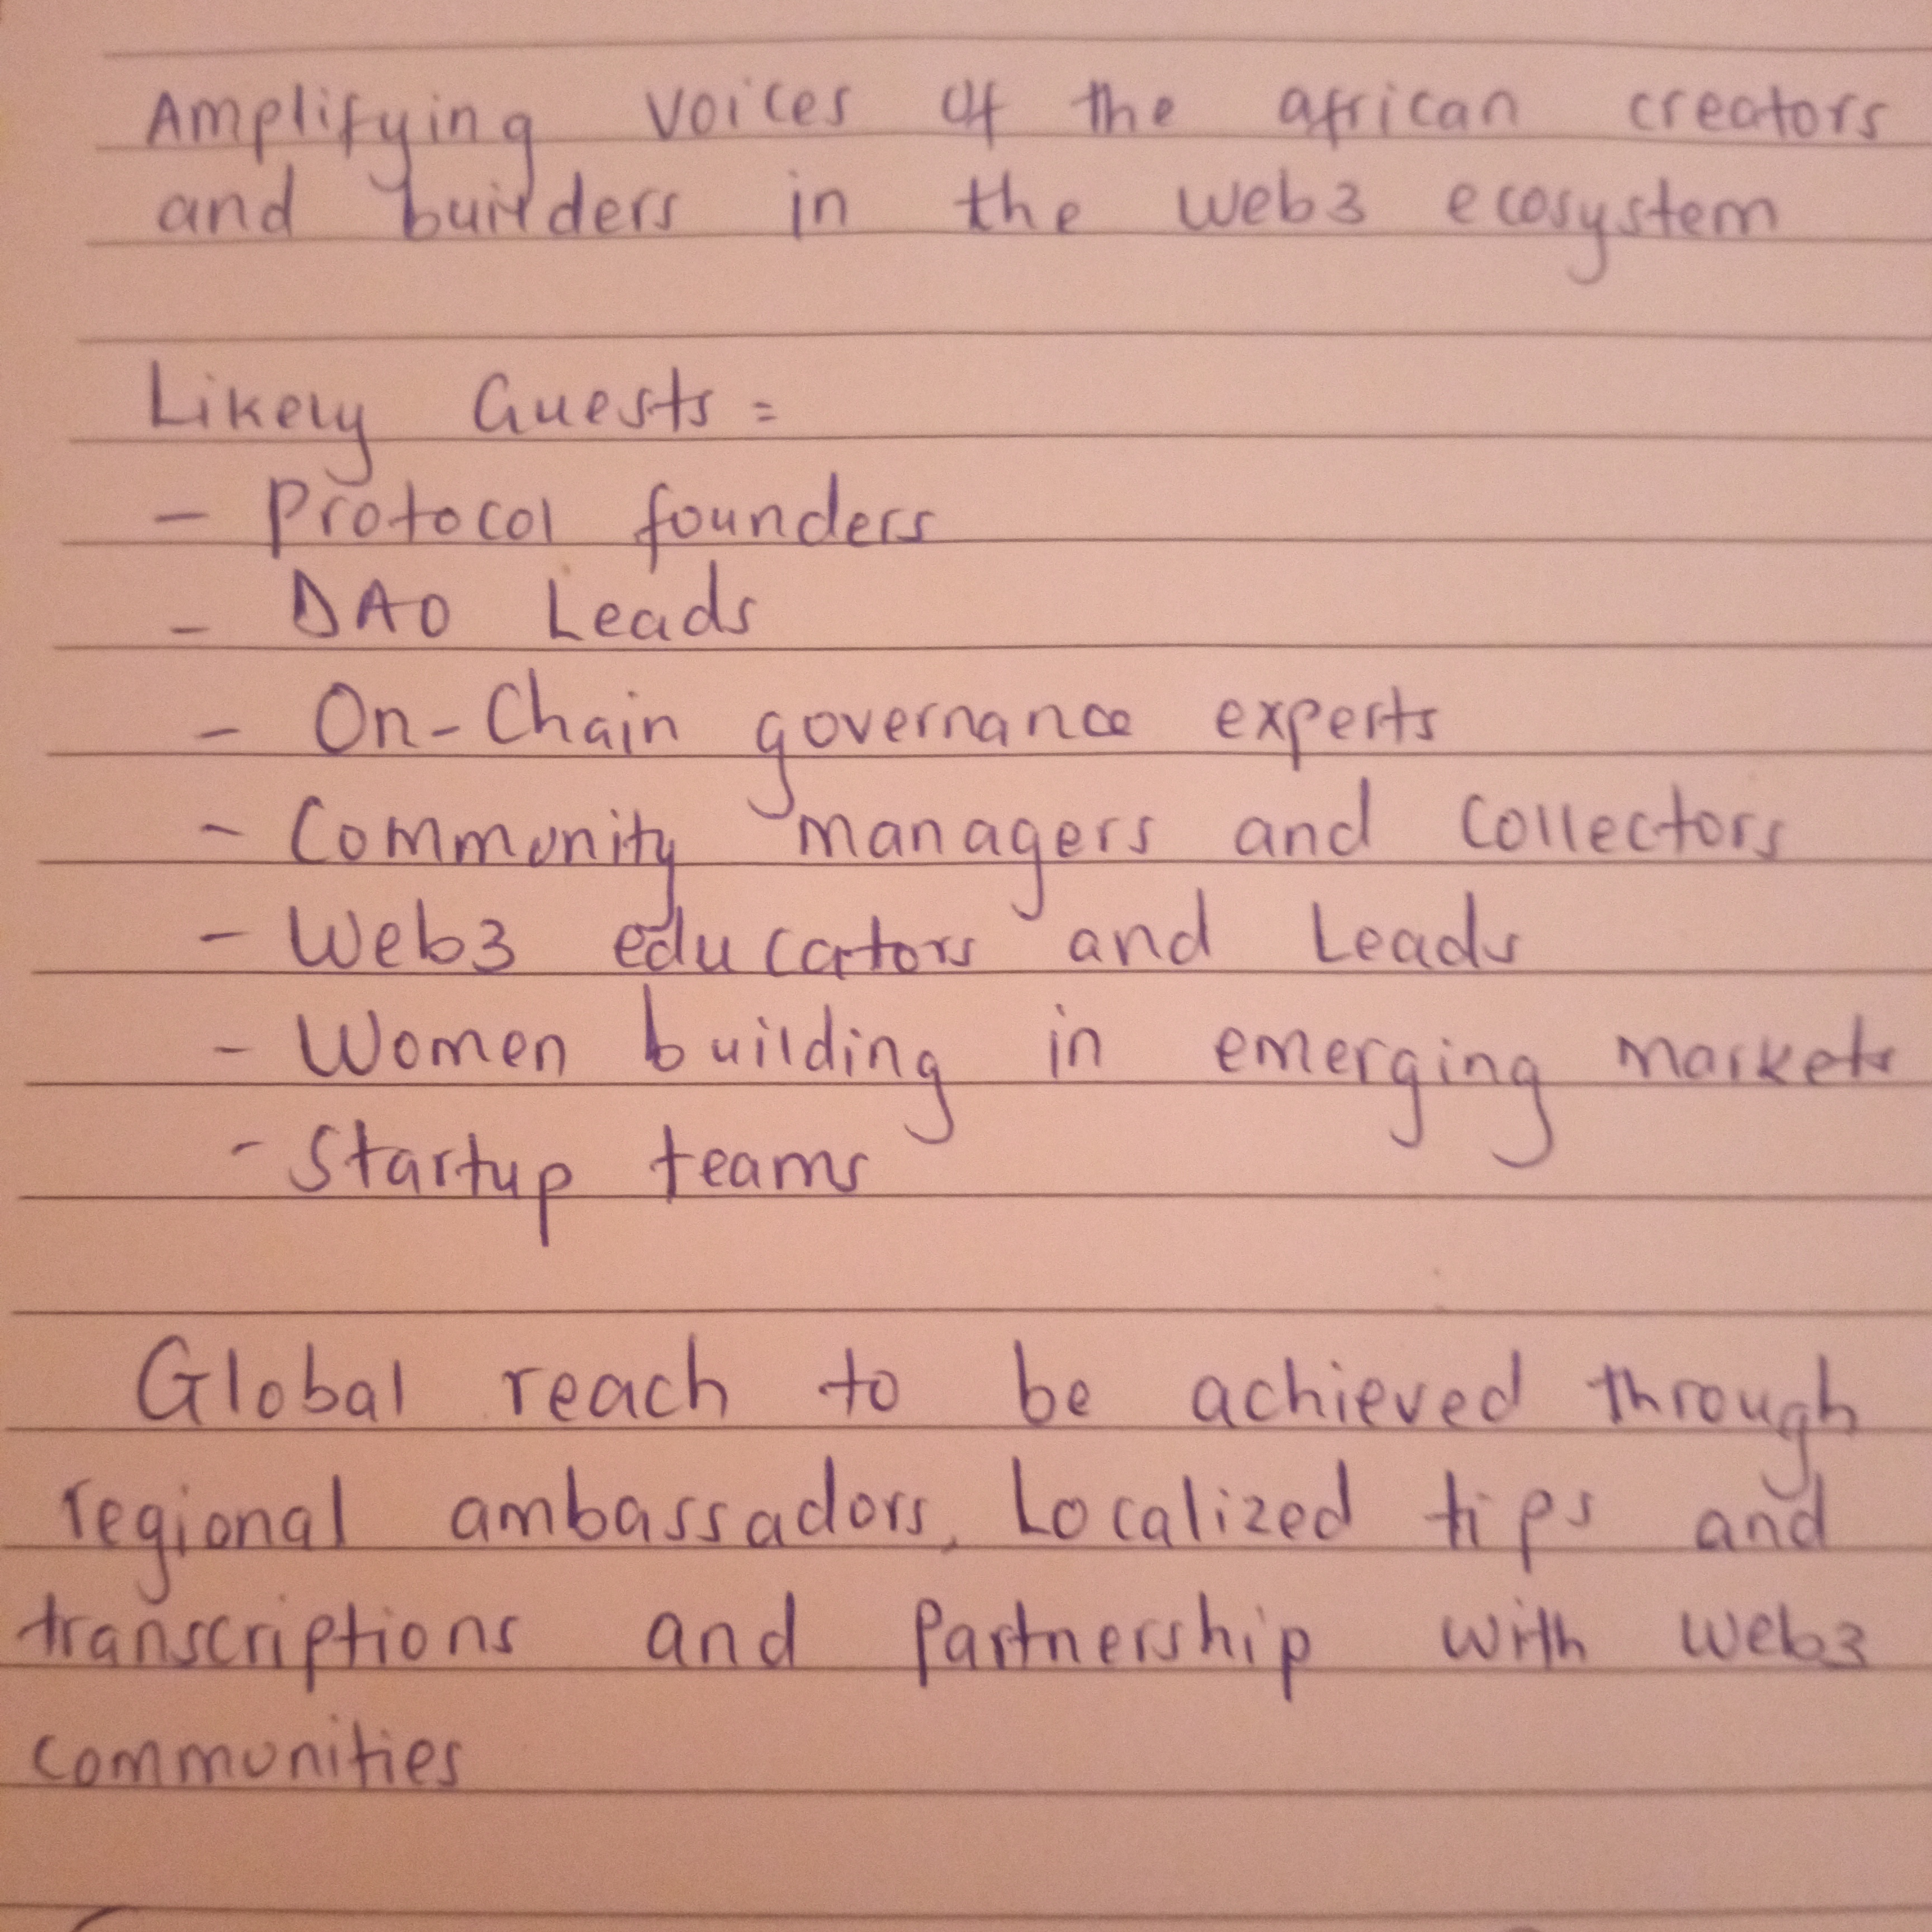 Amplifying voices of the african creators
and builders in the web3 ecosystem
Likely Guests =
- Protocol founders
- DAO Leads
- On-Chain governance experts
- Community managers and collectors
- Web3 educators and Leads
- Women building in emerging markets
- Startup teams
Global reach to be achieved through
regional ambassadors, Localized tips and
transcriptions and Partnership with web3
communities